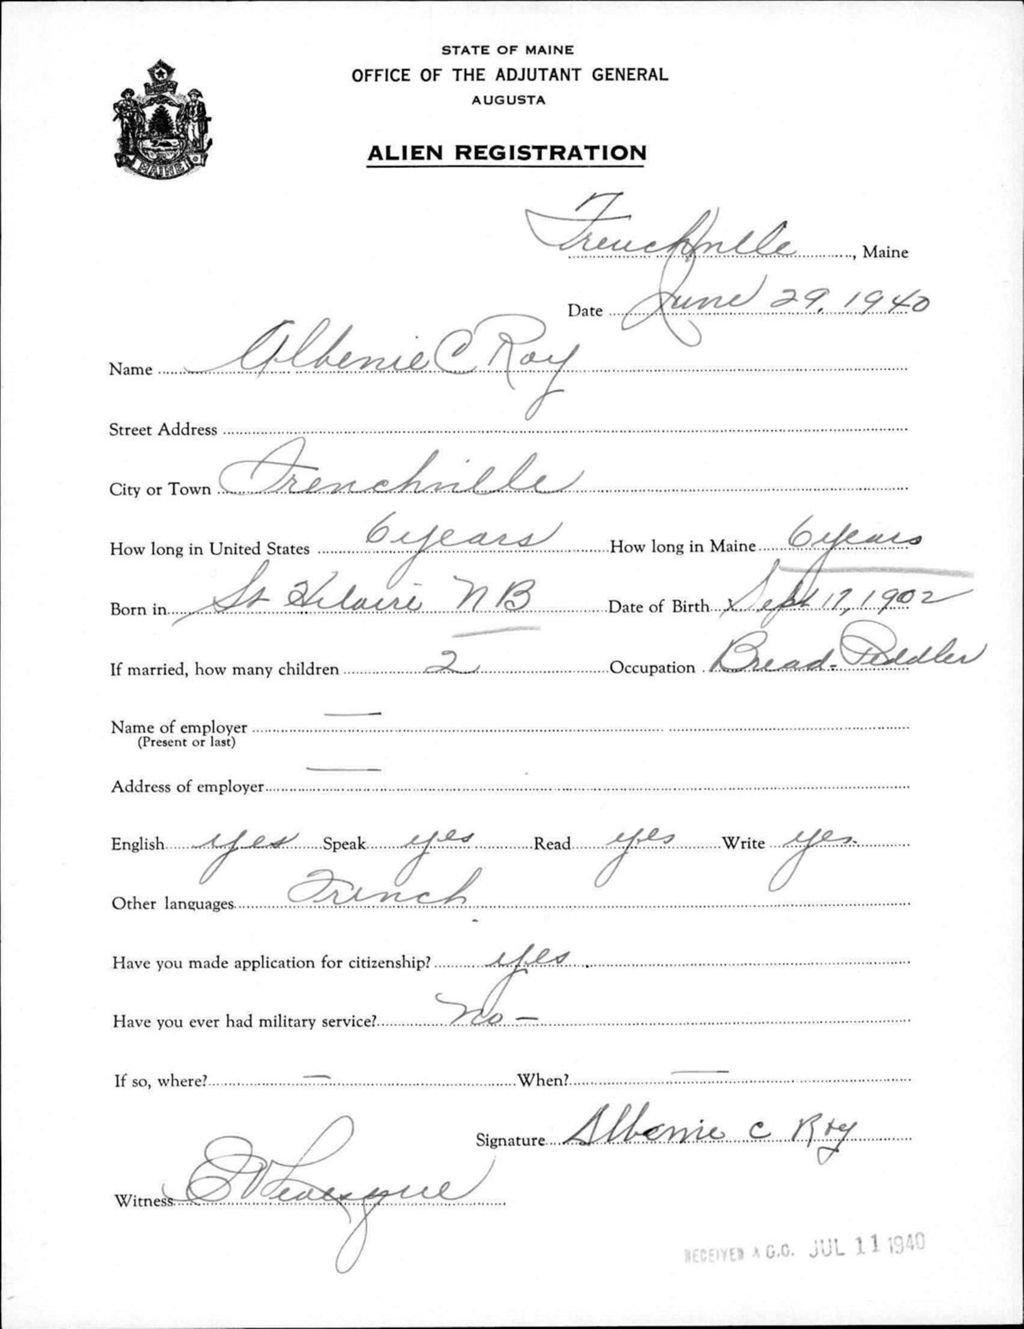 STATE OF MAINE
OFFICE OF THE ADJUTANT GENERAL
AUGUSTA
ALIEN REGISTRATION
MAINE
Frenchville, Maine
Date June 29, 1940
Name Albenie C Roy
Street Address
City or Town Frenchville
How long in United States 6 years How long in Maine 6 years
Born in St Hilaire NB Date of Birth Sept 17, 1902
If married, how many children 2 Occupation Bread-Peddler
Name of employer —
(Present or last)
Address of employer —
English yes Speak yes Read yes Write yes
Other languages French
Have you made application for citizenship? yes
Have you ever had military service? no —
If so, where? — When? —
Signature Albenie C Roy
Witness Levesque
RECEIVED A.G.O. JUL 11 1940